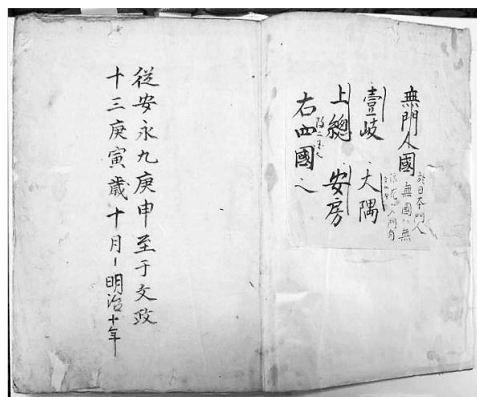 無門人國
於日本門人
無國ハ無
壹岐　大隅
上總　安房
右四國之
從安永九庚申至于文政
十三庚寅歳十月ー明治十年